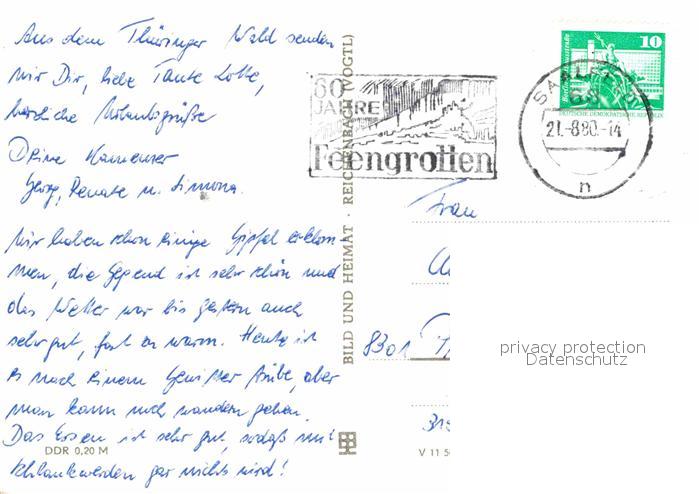 Aus dem Thüringer Wald senden
wir Dir, liebe Tante Lotte,
herzliche Urlaubsgrüße
Deine Kamenzer
Georg, Renate u. Simona.
Wir haben schon einige Gipfel erklom-
men, die Gegend ist sehr schön und
das Wetter war bis gestern auch
sehr gut, fast zu warm. Heute ist
es nach einem Gewitter trübe, aber
man kann noch wandern gehen.
Das Essen ist sehr gut, sodaß mit
Schlankwerden gar nichts wird!
DDR 0,20 M
BILD UND HEIMAT · REICHENBACH (VOGTL)
V 11 50
60
JAHRE
Feengrotten
SAALFELD
21.-8.80.-14
n
10
DEUTSCHE DEMOKRATISCHE REPUBLIK
Frau
8301
privacy protection
Datenschutz